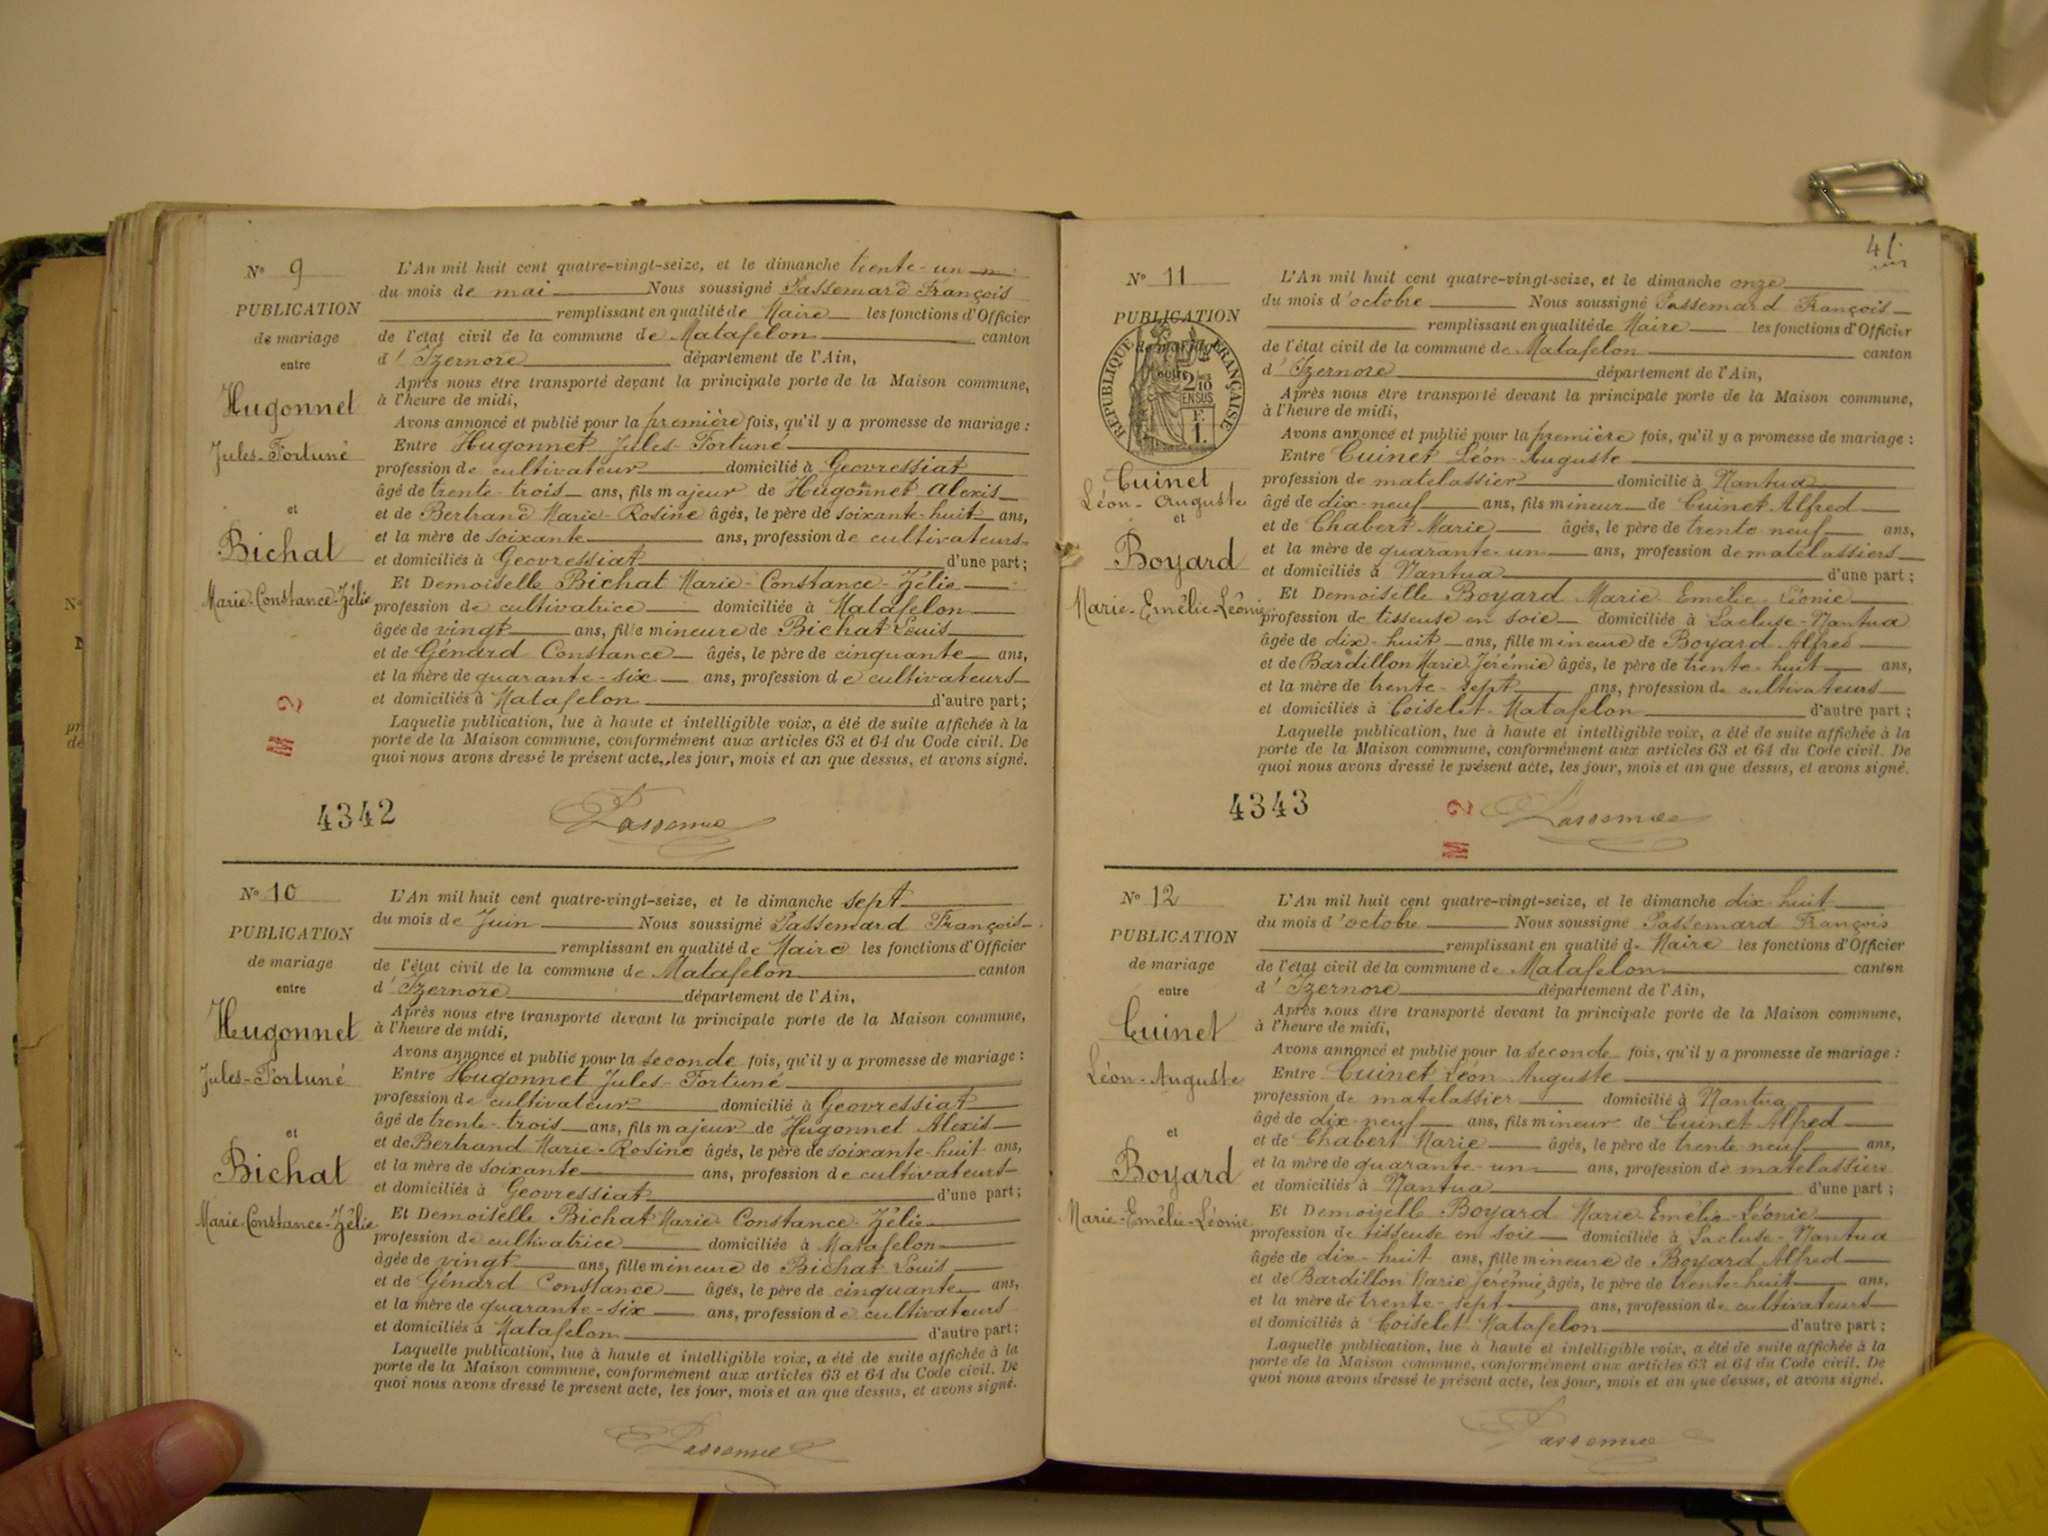 N° 9
PUBLICATION
de mariage
entre
Hugonnet
Jules-Fortuné
et
Bichat
Marie-Constance-Zélie
M 2
4342
L'An mil huit cent quatre-vingt-seize, et le dimanche trente-un
du mois de mai Nous soussigné Passemard François
remplissant en qualité de Maire les fonctions d'Officier
de l'état civil de la commune de Matafelon canton
d'Izernore département de l'Ain,
Après nous être transporté devant la principale porte de la Maison commune,
à l'heure de midi,
Avons annoncé et publié pour la première fois, qu'il y a promesse de mariage :
Entre Hugonnet Jules-Fortuné
profession de cultivateur domicilié à Geovressiat
âgé de trente-trois ans, fils majeur de Hugonnet Alexis
et de Bertrand Marie-Rosine âgés, le père de soixante-huit ans,
et la mère de soixante ans, profession de cultivateurs
et domiciliés à Geovressiat d'une part ;
Et Demoiselle Bichat Marie-Constance-Zélie
profession de cultivatrice domiciliée à Matafelon
âgée de vingt ans, fille mineure de Bichat Louis
et de Génard Constance âgés, le père de cinquante ans,
et la mère de quarante-six ans, profession de cultivateurs
et domiciliés à Matafelon d'autre part ;
Laquelle publication, lue à haute et intelligible voix, a été de suite affichée à la
porte de la Maison commune, conformément aux articles 63 et 64 du Code civil. De
quoi nous avons dressé le présent acte, les jour, mois et an que dessus, et avons signé.
N° 10
PUBLICATION
de mariage
entre
Hugonnet
Jules-Fortuné
et
Bichat
Marie-Constance-Zélie
L'An mil huit cent quatre-vingt-seize, et le dimanche sept
du mois de Juin Nous soussigné Passemard François
remplissant en qualité de Maire les fonctions d'Officier
de l'état civil de la commune de Matafelon canton
d'Izernore département de l'Ain,
Après nous être transporté devant la principale porte de la Maison commune,
à l'heure de midi,
Avons annoncé et publié pour la seconde fois, qu'il y a promesse de mariage :
Entre Hugonnet Jules-Fortuné
profession de cultivateur domicilié à Geovressiat
âgé de trente-trois ans, fils majeur de Hugonnet Alexis
et de Bertrand Marie-Rosine âgés, le père de soixante-huit ans,
et la mère de soixante ans, profession de cultivateurs
et domiciliés à Geovressiat d'une part ;
Et Demoiselle Bichat Marie-Constance-Zélie
profession de cultivatrice domiciliée à Matafelon
âgée de vingt ans, fille mineure de Bichat Louis
et de Génard Constance âgés, le père de cinquante ans,
et la mère de quarante-six ans, profession de cultivateurs
et domiciliés à Matafelon d'autre part ;
Laquelle publication, lue à haute et intelligible voix, a été de suite affichée à la
porte de la Maison commune, conformément aux articles 63 et 64 du Code civil. De
quoi nous avons dressé le présent acte, les jour, mois et an que dessus, et avons signé.
41
N° 11
PUBLICATION
de mariage
entre
RÉPUBLIQUE FRANÇAISE
2/10
EN SUS
F
1
Cuinet
Léon-Auguste
et
Boyard
Marie-Emélie-Léonie
4343
M 2
L'An mil huit cent quatre-vingt-seize, et le dimanche onze
du mois d'octobre Nous soussigné Passemard François
remplissant en qualité de Maire les fonctions d'Officier
de l'état civil de la commune de Matafelon canton
d'Izernore département de l'Ain,
Après nous être transporté devant la principale porte de la Maison commune,
à l'heure de midi,
Avons annoncé et publié pour la première fois, qu'il y a promesse de mariage :
Entre Cuinet Léon-Auguste
profession de matelassier domicilié à Nantua
âgé de dix-neuf ans, fils mineur de Cuinet Alfred
et de Chabert Marie âgés, le père de trente neuf ans,
et la mère de quarante-un ans, profession de matelassiers
et domiciliés à Nantua d'une part ;
Et Demoiselle Boyard Marie Emélie-Léonie
profession de tisseuse en soie domiciliée à Lacluse-Nantua
âgée de dix-huit ans, fille mineure de Boyard Alfred
et de Bardillon Marie Jérémie âgés, le père de trente-huit ans,
et la mère de trente-sept ans, profession de cultivateurs
et domiciliés à Coiselet-Matafelon d'autre part ;
Laquelle publication, lue à haute et intelligible voix, a été de suite affichée à la
porte de la Maison commune, conformément aux articles 63 et 64 du Code civil. De
quoi nous avons dressé le présent acte, les jour, mois et an que dessus, et avons signé.
N° 12
PUBLICATION
de mariage
entre
Cuinet
Léon-Auguste
et
Boyard
Marie-Emélie-Léonie
L'An mil huit cent quatre-vingt-seize, et le dimanche dix huit
du mois d'octobre Nous soussigné Passemard François
remplissant en qualité de Maire les fonctions d'Officier
de l'état civil de la commune de Matafelon canton
d'Izernore département de l'Ain,
Après nous être transporté devant la principale porte de la Maison commune,
à l'heure de midi,
Avons annoncé et publié pour la seconde fois, qu'il y a promesse de mariage :
Entre Cuinet Léon Auguste
profession de matelassier domicilié à Nantua
âgé de dix-neuf ans, fils mineur de Cuinet Alfred
et de Chabert Marie âgés, le père de trente neuf ans,
et la mère de quarante-un ans, profession de matelassiers
et domiciliés à Nantua d'une part ;
Et Demoiselle Boyard Marie-Emélie-Léonie
profession de tisseuse en soie domiciliée à Lacluse-Nantua
âgée de dix-huit ans, fille mineure de Boyard Alfred
et de Bardillon Marie Jérémie âgés, le père de trente-huit ans,
et la mère de trente-sept ans, profession de cultivateurs
et domiciliés à Coiselet Matafelon d'autre part ;
Laquelle publication, lue à haute et intelligible voix, a été de suite affichée à la
porte de la Maison commune, conformément aux articles 63 et 64 du Code civil. De
quoi nous avons dressé le présent acte, les jour, mois et an que dessus, et avons signé.